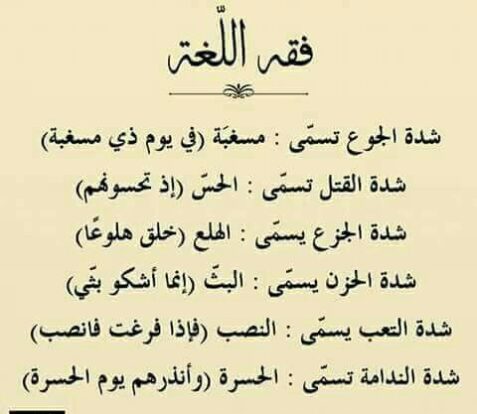 فقه اللّغة
شدة الجوع تسمّى : مسغبَة (في يوم ذي مسغبة)
شدة القتل تسمّى : الحسّ (إذ تحسونهم)
شدة الجزع يسمّى : الهلع (خلق هلوعًا)
شدة الحزن يسمّى : البثّ (إنما أشكو بثّي)
شدة التعب يسمّى : النصب (فإذا فرغت فانصب)
شدة الندامة تسمّى : الحسرة (وأنذرهم يوم الحسرة)